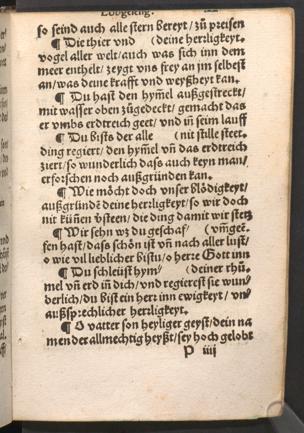 Lobgesang.
so seind auch alle stern bereyt/ zů preisen
¶ Die thier vnd (deine herꝛligkeyt.
vogel aller welt/ auch was sich inn dem
meer enthelt/ zeygt vns frey an jm selbest
an/ was deine krafft vnd weyßheyt kan.
¶ Du hast den hym̃el außgestreckt/
mit wasser oben zůgedeckt/ gemacht das
er vmbs erdtreich geet/ vnd in̄ seim lauff
¶ Du bists der alle (nit stille steet.
ding regiert/ den hym̃el vn̄ das erdtreich
ziert/ so wunderlich dass auch keyn man/
erforschen noch außgründen kan.
¶ Wie möcht doch vnser blödigkeyt/
außgründē deine herꝛligkeyt/ so wir doch
nit kün̄en v̄steen/ die ding damit wir stetz
¶ Wir sehn wz du geschaf (vm̄geē.
fen hast/ dass schön ist vn̄ nach aller lust/
o wie vil lieblicher bistu/ o herꝛe Gott inn
¶ Du schleüst hym/ (deiner rhů.
mel vn̄ erd in̄ dich/ vnd regierest sie wun/
derlich/ du bist ein herꝛ inn ewigkeyt/ vn/
außspꝛechlicher herꝛligkeyt.
¶ O vatter son heyliger geyst/ dein na
men der allmechtig heyßt/ sey hoch gelobt
P iiij